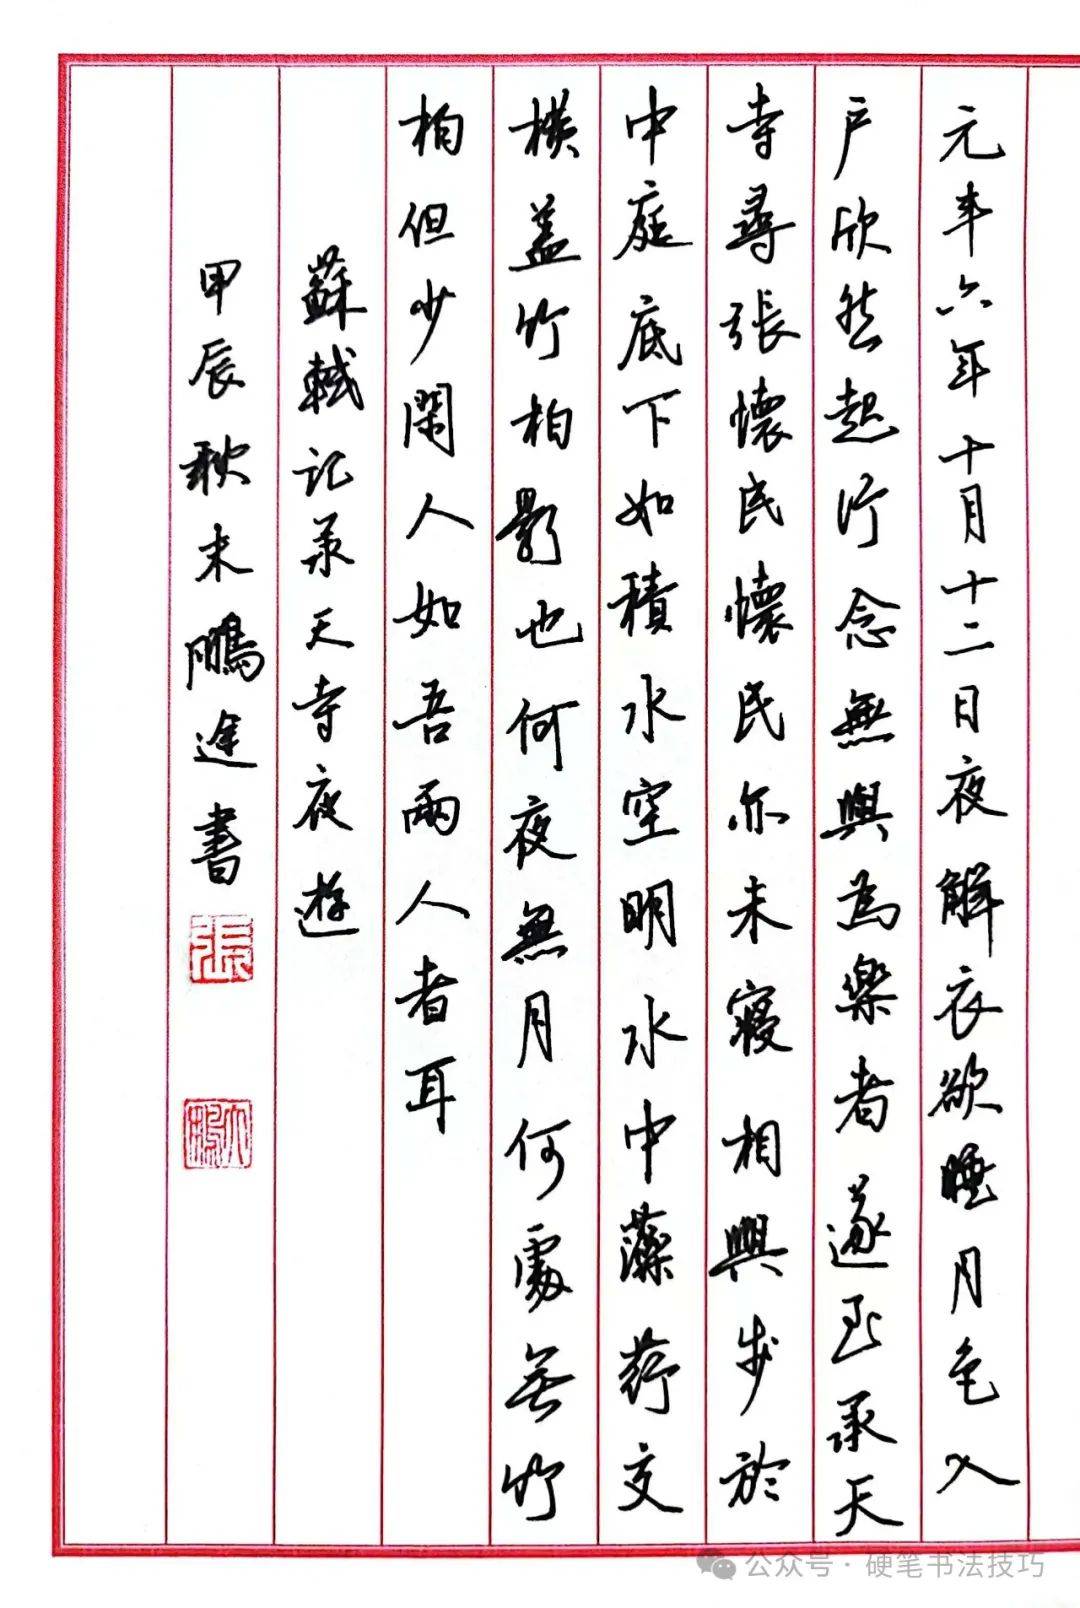 元丰六年十月十二日夜解衣欲睡月色入
户欣然起行念無與為樂者遂至承天
寺尋張懷民懷民亦未寢相與步於
中庭底下如積水空明水中藻荇交
横盖竹柏影也何夜無月何處無竹
柏但少閑人如吾兩人者耳
蘇軾记承天寺夜遊
甲辰秋末鵬途書
張
公众号·硬笔书法技巧